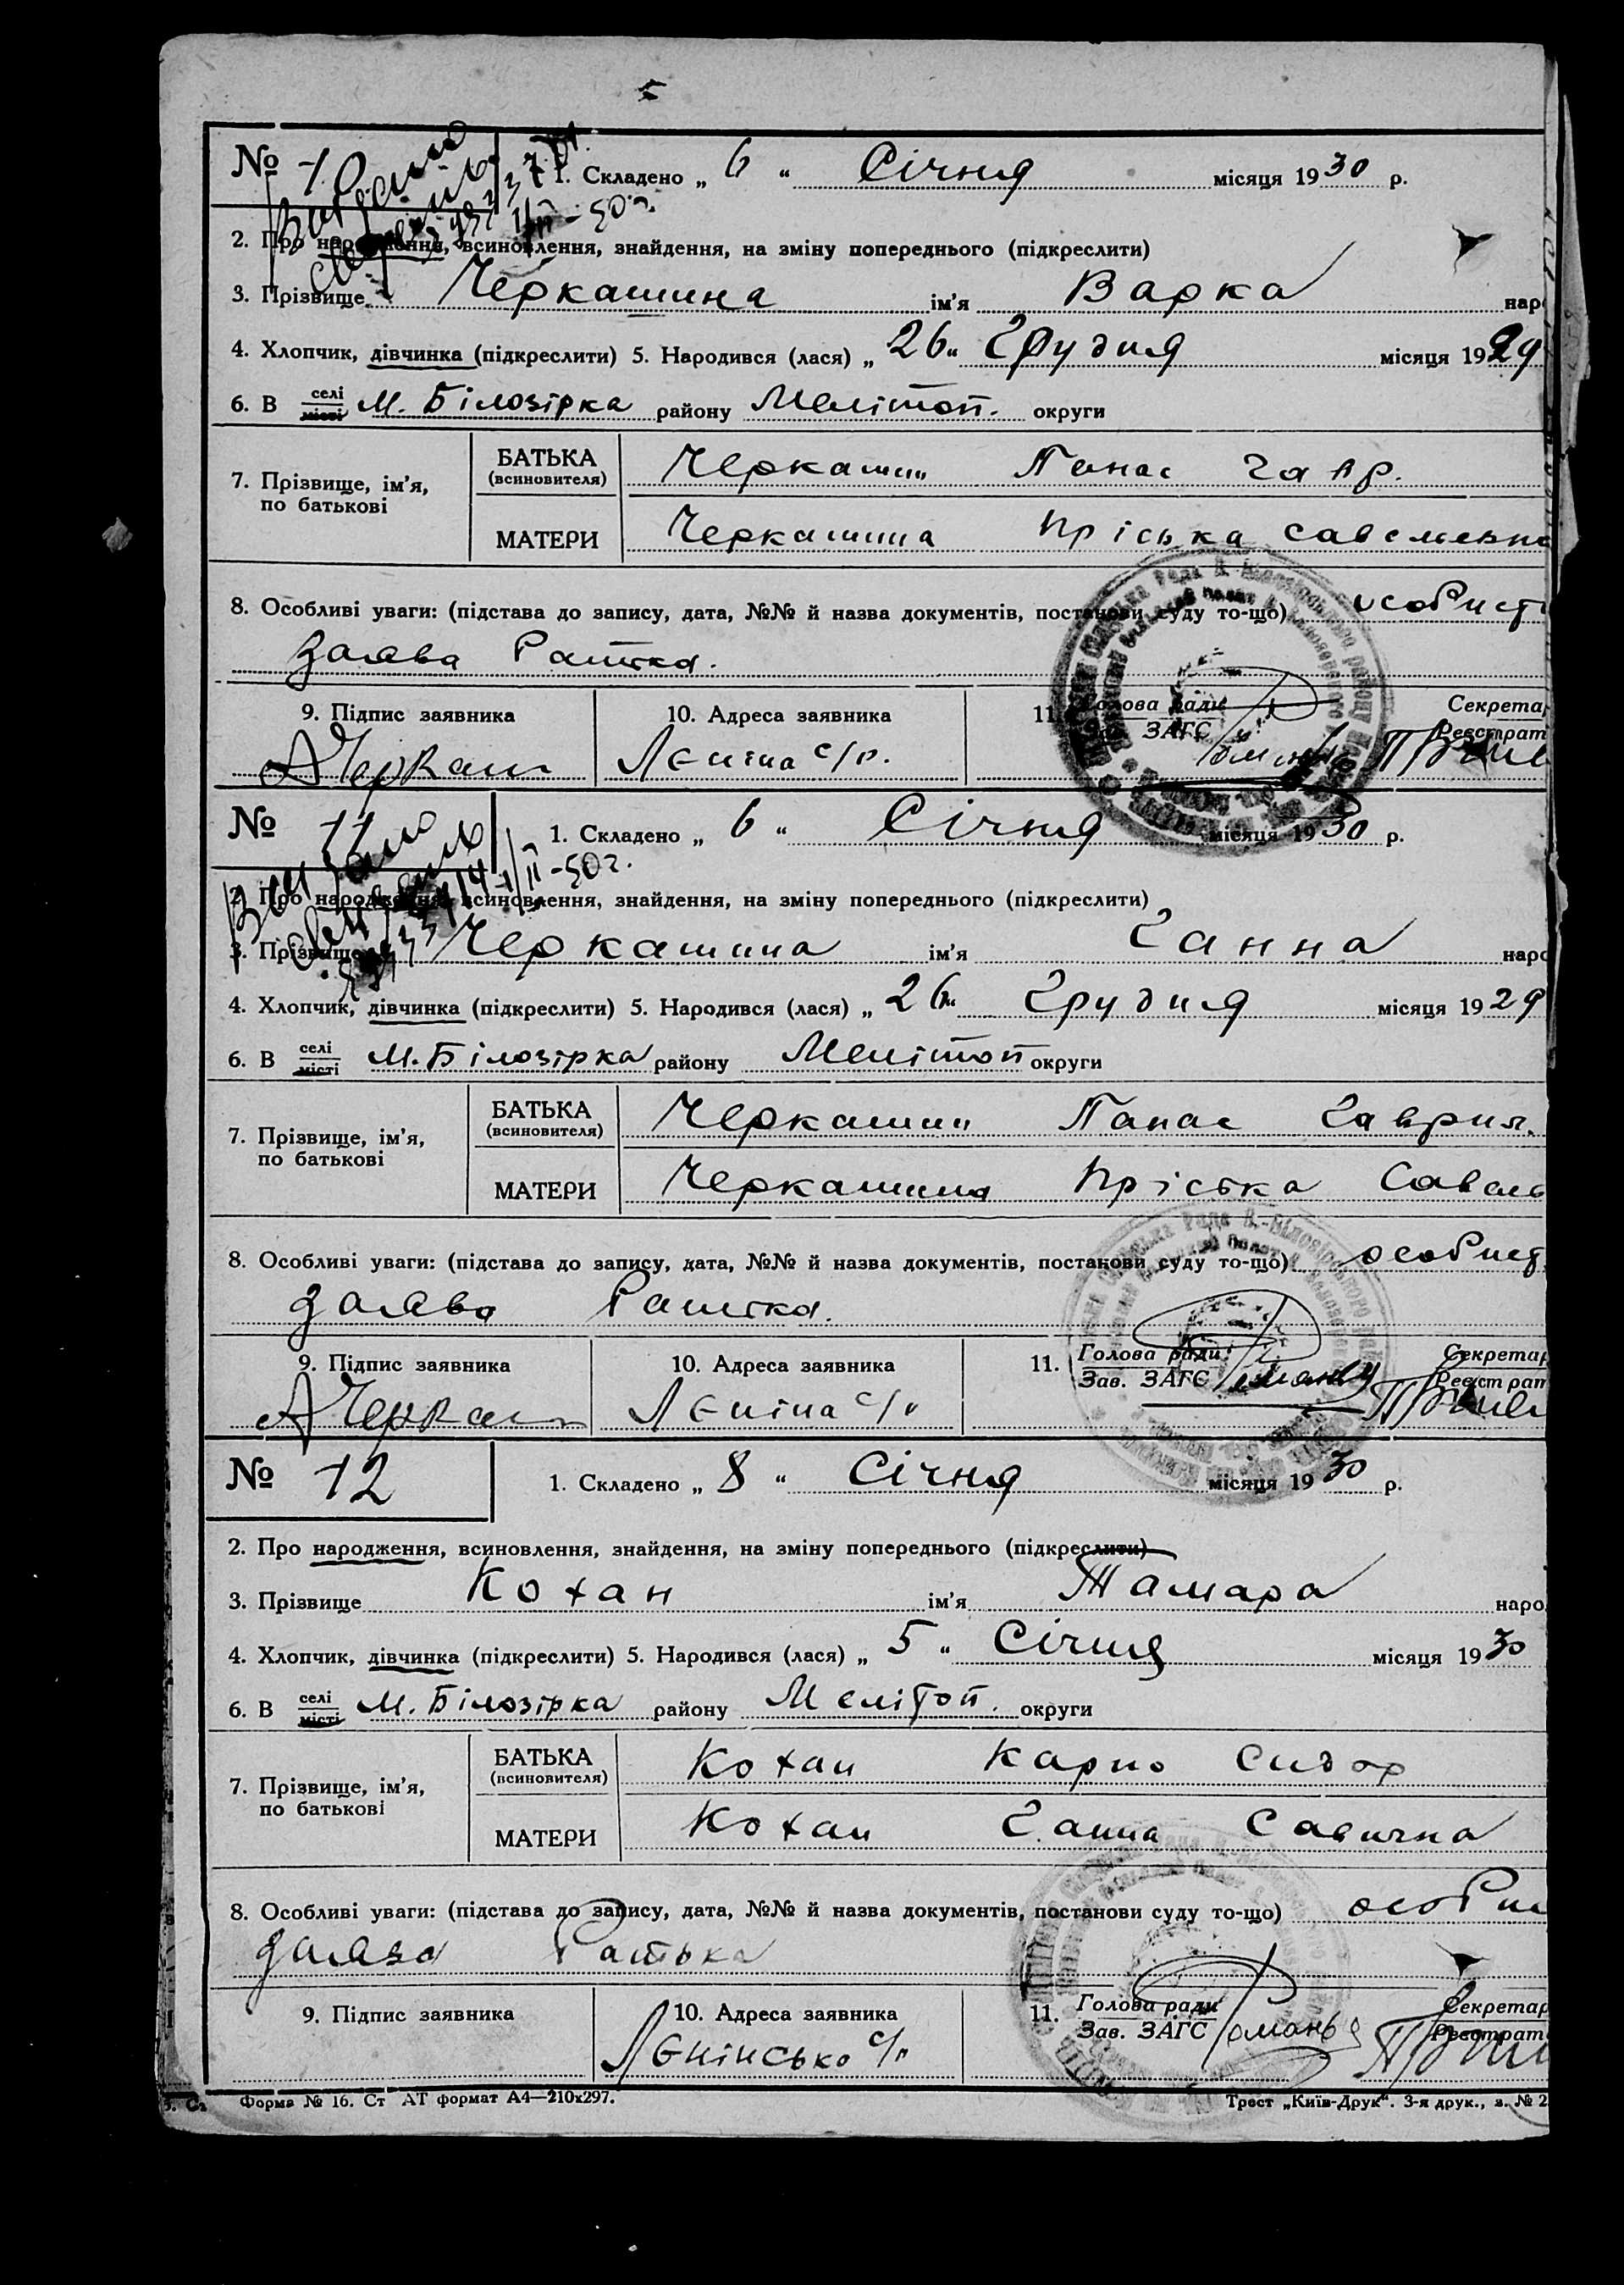 5
№ 10
1. Складено „ 6 “ Січня місяця 1930 р.
Видано
2. Про народження, всиновлення, знайдення, на зміну попереднього (підкреслити)
3. Прізвище Черкашина ім’я Варка наро
4. Хлопчик, дівчинка (підкреслити) 5. Народився (лася) „ 26 “ Грудня місяця 1929
6. В селі місті М. Білозірка району Мелітоп. округи
7. Прізвище, ім’я, по батькові
БАТЬКА (всиновителя) Черкашин Панас Гавр.
МАТЕРИ Черкашина Пріська Савельевна
8. Особливі уваги: (підстава до запису, дата, №№ й назва документів, постанови суду то-що) особист
заява батька.
9. Підпис заявника 10. Адреса заявника 11. Голова ради Секретар
Зав. ЗАГС Реєстрат
АЧеркаш Леніна с/р.
№ 11
1. Складено „ 6 “ Січня місяця 1930 р.
II-50г.
2. Про народження, всиновлення, знайдення, на зміну попереднього (підкреслити)
3. Прізвище Черкашина ім’я Ганна наро
4. Хлопчик, дівчинка (підкреслити) 5. Народився (лася) „ 26 “ Грудня місяця 1929
6. В селі місті М. Білозірка району Мелітоп округи
7. Прізвище, ім’я, по батькові
БАТЬКА (всиновителя) Черкашин Панас Гаврил.
МАТЕРИ Черкашина Пріська Савель
8. Особливі уваги: (підстава до запису, дата, №№ й назва документів, постанови суду то-що) особист
заява батька.
9. Підпис заявника 10. Адреса заявника 11. Голова ради Секретар
Зав. ЗАГС Реєстрат
АЧеркаш Леніна с/р
№ 12
1. Складено „ 8 “ Січня місяця 1930 р.
2. Про народження, всиновлення, знайдення, на зміну попереднього (підкреслити)
3. Прізвище Кохан ім’я Тамара наро
4. Хлопчик, дівчинка (підкреслити) 5. Народився (лася) „ 5 “ Січня місяця 1930
6. В селі місті М. Білозірка району Мелітоп. округи
7. Прізвище, ім’я, по батькові
БАТЬКА (всиновителя) Кохан Карпо Сидор
МАТЕРИ Кохан Ганна Савична
8. Особливі уваги: (підстава до запису, дата, №№ й назва документів, постанови суду то-що) особис
заява батька
9. Підпис заявника 10. Адреса заявника 11. Голова ради Секретар
Зав. ЗАГС Реєстрат
Ленінсько с/р
Форма № 16. Ст АТ формат А4—210х297. Трест „Київ-Друк“. 3-я друк., з. № 2